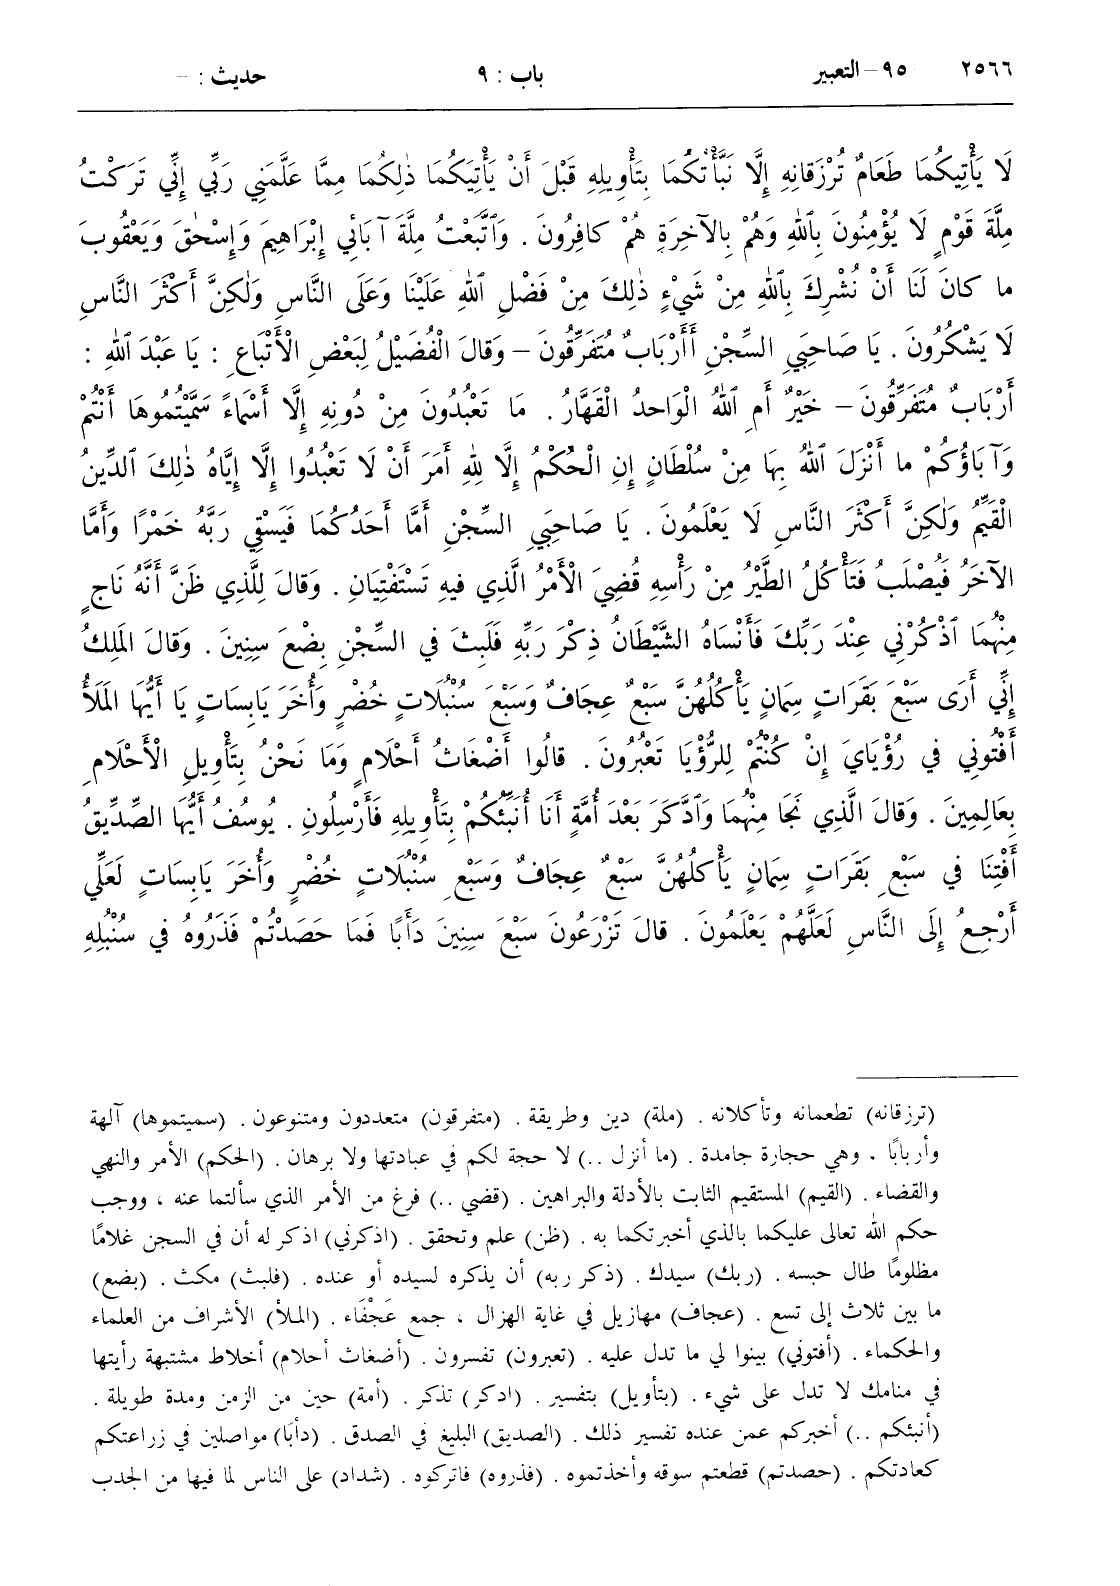 ٢٥٦٦ ٩٥ – التعبير باب : ٩ حديث : –
لَا يَأْتِيكُمَا طَعَامٌ تُرْزَقَانِهِ إِلَّا نَبَّأْتُكُمَا بِتَأْوِيلِهِ قَبْلَ أَنْ يَأْتِيَكُمَا ذٰلِكُمَا مِمَّا عَلَّمَنِي رَبِّي إِنِّي تَرَكْتُ
مِلَّةَ قَوْمٍ لَا يُؤْمِنُونَ بِٱللهِ وَهُمْ بِالآخِرَةِ هُمْ كافِرُونَ . وَٱتَّبَعْتُ مِلَّةَ آبَائِي إِبْرَاهِيمَ وَإِسْحٰقَ وَيَعْقُوبَ
ما كانَ لَنَا أَنْ نُشْرِكَ بِٱللهِ مِنْ شَيْءٍ ذٰلِكَ مِنْ فَضْلِ ٱللهِ عَلَيْنَا وَعَلَى النَّاسِ وَلٰكِنَّ أَكْثَرَ النَّاسِ
لَا يَشْكُرُونَ . يَا صَاحِبَيِ السِّجْنِ أَأَرْبَابٌ مُتَفَرِّقُونَ – وَقالَ الْفُضَيْلُ لِبَعْضِ الْأَتْبَاعِ : يَا عَبْدَ ٱللهِ :
أَرْبَابٌ مُتَفَرِّقُونَ – خَيْرٌ أَمِ ٱللهُ الْوَاحدُ الْقَهَّارُ . مَا تَعْبُدُونَ مِنْ دُونِهِ إِلَّا أَسْمَاءً سَمَّيْتُمُوهَا أَنْتُمْ
وَآبَاؤُكُمْ ما أَنْزَلَ ٱللهُ بِهَا مِنْ سُلْطَانٍ إِنِ الْحُكْمُ إِلَّا لِلهِ أَمَرَ أَنْ لَا تَعْبُدُوا إِلَّا إِيَّاهُ ذٰلِكَ ٱلدِّينُ
الْقَيِّمُ وَلٰكِنَّ أَكْثَرَ النَّاسِ لَا يَعْلَمُونَ . يَا صَاحِبَيِ السِّجْنِ أَمَّا أَحَدُكُمَا فَيَسْقِي رَبَّهُ خَمْرًا وَأَمَّا
الآخَرُ فَيُصْلَبُ فَتَأْكُلُ الطَّيْرُ مِنْ رَأْسِهِ قُضِيَ الْأَمْرُ الَّذِي فيهِ تَسْتَفْتِيَانِ . وَقالَ لِلَّذِي ظَنَّ أَنَّهُ نَاجٍ
مِنْهُمَا ٱذْكُرْنِي عِنْدَ رَبِّكَ فَأَنْسَاهُ الشَّيْطَانُ ذِكْرَ رَبِّهِ فَلَبِثَ في السِّجْنِ بِضْعَ سِنِينَ . وَقالَ المَلِكُ
إِنِّي أَرَى سَبْعَ بَقَرَاتٍ سِمَانٍ يَأْكُلُهُنَّ سَبْعٌ عِجَافٌ وَسَبْعَ سُنْبُلَاتٍ خُضْرٍ وَأُخَرَ يَابِسَاتٍ يَا أَيُّهَا المَلَأُ
أَفْتُونِي في رُؤْيَايَ إِنْ كُنْتُمْ لِلرُّؤْيَا تَعْبُرُونَ . قالُوا أَضْغَاثُ أَحْلَامٍ وَمَا نَحْنُ بِتَأْوِيلِ الْأَحْلَامِ
بِعَالِمِينَ . وَقالَ الَّذِي نَجَا مِنْهُمَا وَٱدَّكَرَ بَعْدَ أُمَّةٍ أَنَا أُنَبِّئُكُمْ بِتَأْوِيلِهِ فَأَرْسِلُونِ . يُوسُفُ أَيُّهَا الصِّدِّيقُ
أَفْتِنَا في سَبْعِ بَقَرَاتٍ سِمَانٍ يَأْكُلُهُنَّ سَبْعٌ عِجَافٌ وَسَبْعِ سُنْبُلَاتٍ خُضْرٍ وَأُخَرَ يَابِسَاتٍ لَعَلِّي
أَرْجِعُ إِلَى النَّاسِ لَعَلَّهُمْ يَعْلَمُونَ . قالَ تَزْرَعُونَ سَبْعَ سِنِينَ دَأَبًا فَمَا حَصَدْتُمْ فَذَرُوهُ في سُنْبُلِهِ
(ترزقانه) تطعمانه وتأكلانه . (ملة) دين وطريقة . (متفرقون) متعددون ومتنوعون . (سميتموها) آلهة
وأربابًا ، وهي حجارة جامدة . (ما أنزل ..) لا حجة لكم في عبادتها ولا برهان . (الحكم) الأمر والنهي
والقضاء . (القيم) المستقيم الثابت بالأدلة والبراهين . (قضي ..) فرغ من الأمر الذي سألتما عنه ، ووجب
حكم الله تعالى عليكما بالذي أخبرتكما به . (ظن) علم وتحقق . (اذكرني) اذكر له أن في السجن غلامًا
مظلومًا طال حبسه . (ربك) سيدك . (ذكر ربه) أن يذكره لسيده أو عنده . (فلبث) مكث . (بضع)
ما بين ثلاث إلى تسع . (عجاف) مهازيل في غاية الهزال ، جمع عَجْفَاء . (الملأ) الأشراف من العلماء
والحكماء . (أفتوني) بينوا لي ما تدل عليه . (تعبرون) تفسرون . (أضغاث أحلام) أخلاط مشتبهة رأيتها
في منامك لا تدل على شيء . (بتأويل) بتفسير . (ادكر) تذكر . (أمة) حين من الزمن ومدة طويلة .
(أنبئكم ..) أخبركم عمن عنده تفسير ذلك . (الصديق) البليغ في الصدق . (دأبًا) مواصلين في زراعتكم
كعادتكم . (حصدتم) قطعتم سوقه وأخذتموه . (فذروه) فاتركوه . (شداد) على الناس لما فيها من الجدب